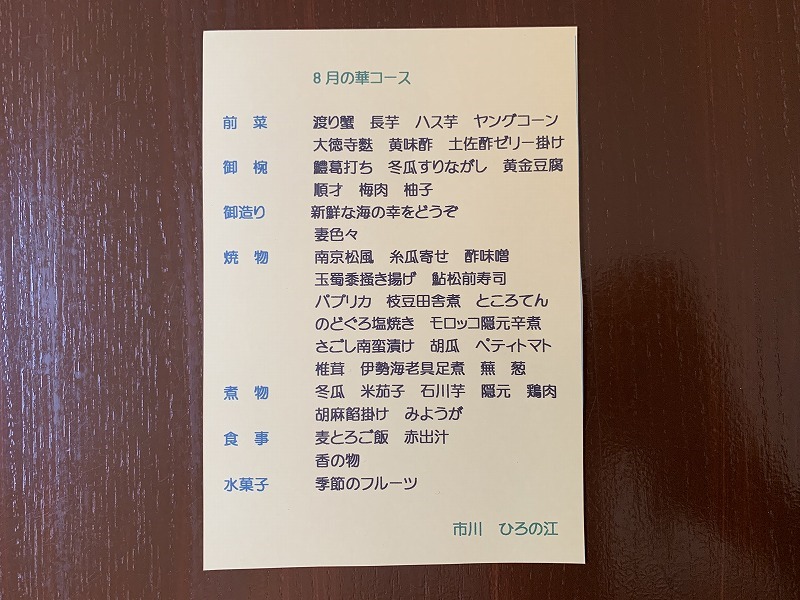 8月の華コース
前 菜 渡り蟹 長芋 ハス芋 ヤングコーン
大徳寺麩 黄味酢 土佐酢ゼリー掛け
御 椀 鱧葛打ち 冬瓜すりながし 黄金豆腐
順才 梅肉 柚子
御造り 新鮮な海の幸をどうぞ
妻色々
焼 物 南京松風 糸瓜寄せ 酢味噌
玉蜀黍掻き揚げ 鮎松前寿司
パプリカ 枝豆田舎煮 ところてん
のどぐろ塩焼き モロッコ隠元辛煮
さごし南蛮漬け 胡瓜 ペティトマト
椎茸 伊勢海老具足煮 蕪 葱
煮 物 冬瓜 米茄子 石川芋 隠元 鶏肉
胡麻餡掛け みようが
食 事 麦とろご飯 赤出汁
香の物
水菓子 季節のフルーツ
市川 ひろの江